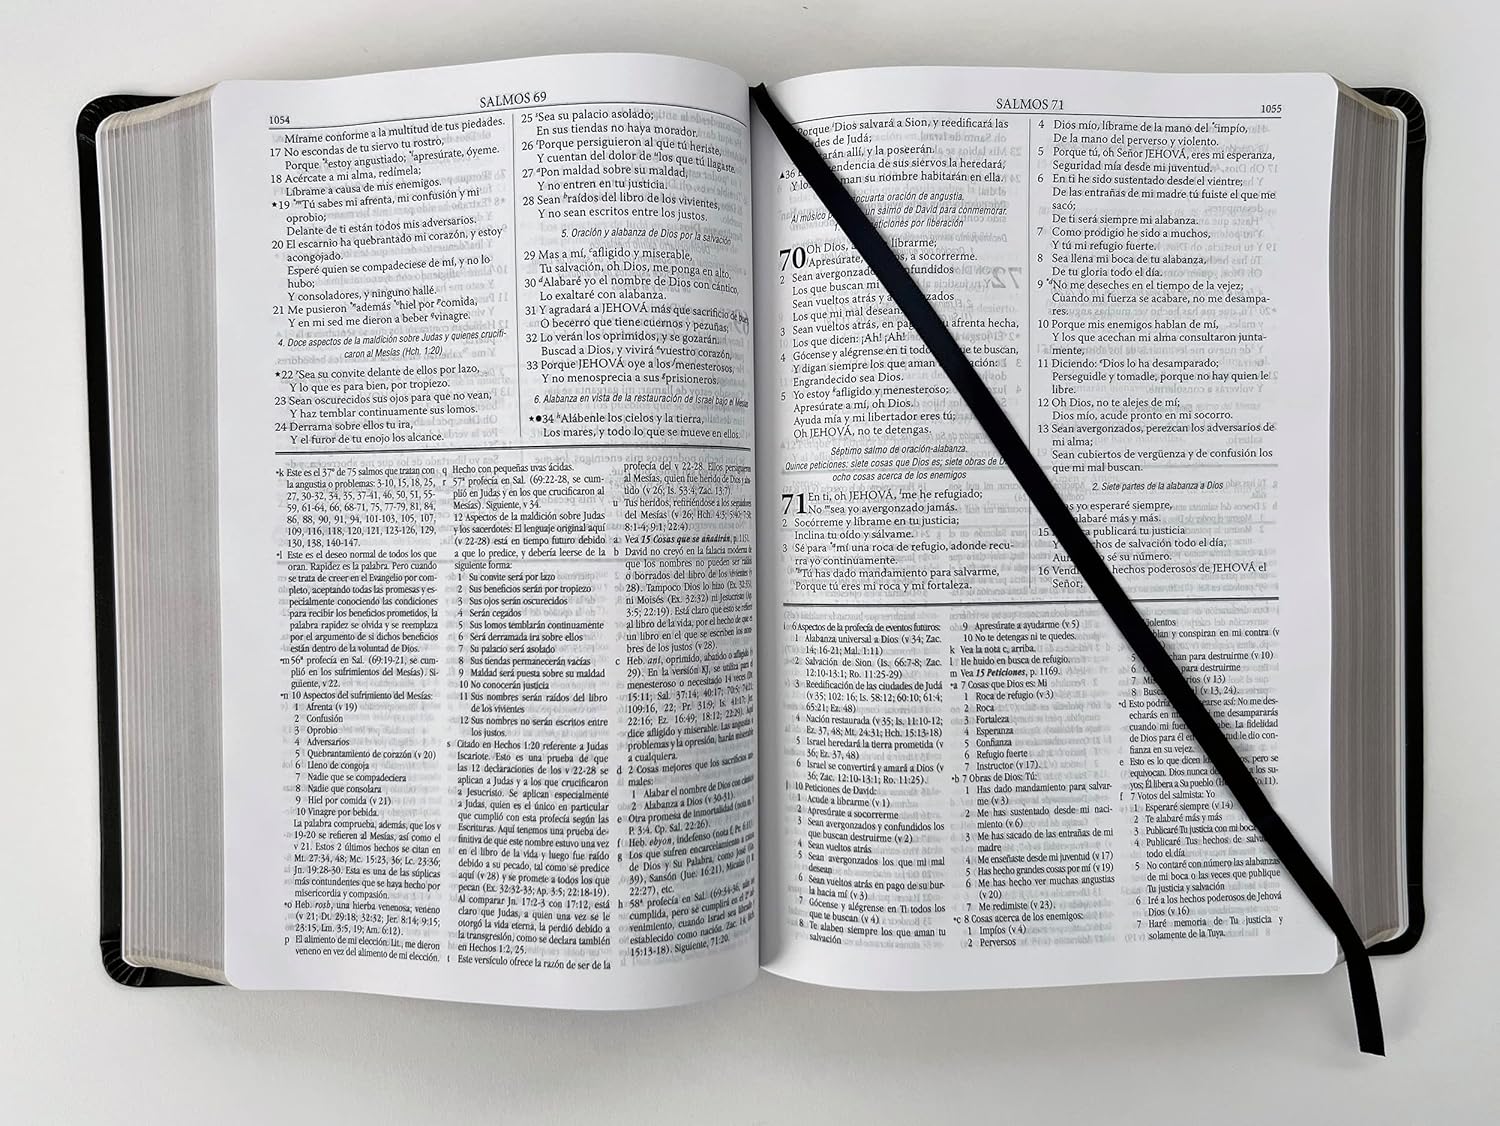 1054
SALMOS 69
Mírame conforme a la multitud de tus piedades.
17 No escondas de tu siervo tu rostro,
Porque estoy angustiado; apresúrate, óyeme.
18 Acércate a mi alma, redímela;
Líbrame a causa de mis enemigos.
★19 Tú sabes mi afrenta, mi confusión y mi
oprobio;
Delante de ti están todos mis adversarios.
20 El escarnio ha quebrantado mi corazón, y estoy
acongojado.
Esperé quien se compadeciese de mí, y no lo
hubo;
Y consoladores, y ninguno hallé.
21 Me pusieron además hiel por comida,
Y en mi sed me dieron a beber vinagre.
4. Doce aspectos de la maldición sobre Judas y quienes crucifi-
caron al Mesías (Hch. 1:20)
★22 Sea su convite delante de ellos por lazo,
Y lo que es para bien, por tropiezo.
23 Sean oscurecidos sus ojos para que no vean,
Y haz temblar continuamente sus lomos.
24 Derrama sobre ellos tu ira,
Y el furor de tu enojo los alcance.
25 Sea su palacio asolado;
En sus tiendas no haya morador.
26 Porque persiguieron al que tú heriste,
Y cuentan del dolor de los que tú llagaste.
27 Pon maldad sobre su maldad,
Y no entren en tu justicia.
28 Sean raídos del libro de los vivientes,
Y no sean escritos entre los justos.
5. Oración y alabanza de Dios por la salvación
29 Mas a mí, afligido y miserable,
Tu salvación, oh Dios, me ponga en alto.
30 Alabaré yo el nombre de Dios con cántico,
Lo exaltaré con alabanza.
31 Y agradará a JEHOVÁ más que sacrificio de buey,
O becerro que tiene cuernos y pezuñas;
32 Lo verán los oprimidos, y se gozarán.
Buscad a Dios, y vivirá vuestro corazón,
33 Porque JEHOVÁ oye a los menesterosos,
Y no menosprecia a sus prisioneros.
6. Alabanza en vista de la restauración de Israel bajo el Mesías
★●34 Alábenle los cielos y la tierra,
Los mares, y todo lo que se mueve en ellos.
*k Este es el 37º de 75 salmos que tratan con
la angustia o problemas: 3-10, 15, 18, 25,
27, 30-32, 34, 35, 37-41, 46, 50, 51, 55-
59, 61-64, 66, 68-71, 75, 77-79, 81, 84,
86, 88, 90, 91, 94, 101-103, 105, 107,
109, 116, 118, 120, 121, 123-126, 129,
130, 138, 140-147.
*l Este es el deseo normal de todos los que
oran. Rapidez es la palabra. Pero cuando
se trata de creer en el Evangelio por com-
pleto, aceptando todas las promesas y es-
pecialmente conociendo las condiciones
para recibir los beneficios prometidos, la
palabra rapidez se olvida y se reemplaza
por el argumento de si dichos beneficios
están dentro de la voluntad de Dios.
*m 56ª profecía en Sal. (69:19-21, se cum-
plió en los sufrimientos del Mesías). Si-
guiente, v 22.
*n 10 Aspectos del sufrimiento del Mesías:
1 Afrenta (v 19)
2 Confusión
3 Oprobio
4 Adversarios
5 Quebrantamiento de corazón (v 20)
6 Lleno de congoja
7 Nadie que se compadeciera
8 Nadie que consolara
9 Hiel por comida (v 21)
10 Vinagre por bebida.
La palabra comprueba, además, que los v
19-20 se refieren al Mesías, así como el
v 21. Estos 2 últimos hechos se citan en
Mt. 27:34, 48; Mc. 15:23, 36; Lc. 23:36;
Jn. 19:28-30. Esta es una de las súplicas
más contundentes que se haya hecho por
misericordia y compasión.
*o Heb. rosb, una hierba venenosa; veneno
(v 21; Dt. 29:18; 32:32; Jer. 8:14; 9:15;
23:15; Lm. 3:5, 19; Am. 6:12).
p El alimento de mi elección. Lit., me dieron
veneno en vez del alimento de mi elección.
q Hecho con pequeñas uvas ácidas.
r 57ª profecía en Sal. (69:22-28, se cum-
plió en Judas y en los que crucificaron al
Mesías). Siguiente, v 34.
12 Aspectos de la maldición sobre Judas
y los sacerdotes: El lenguaje original aquí
(v 22-28) está en tiempo futuro debido
a que lo predice, y debería leerse de la
siguiente forma:
1 Su convite será por lazo
2 Sus beneficios serán por tropiezo
3 Sus ojos serán oscurecidos
4 Serán cegados
5 Sus lomos temblarán continuamente
6 Será derramada ira sobre ellos
7 Su palacio será asolado
8 Sus tiendas permanecerán vacías
9 Maldad será puesta sobre su maldad
10 No conocerán justicia
11 Sus nombres serán raídos del libro
de los vivientes
12 Sus nombres no serán escritos entre
los justos.
s Citado en Hechos 1:20 referente a Judas
Iscariote. Esto es una prueba de que
las 12 declaraciones de los v 22-28 se
aplican a Judas y a los que crucificaron
a Jesucristo. Se aplican especialmente
a Judas, quien es el único en particular
que cumplió con esta profecía según las
Escrituras. Aquí tenemos una prueba de-
finitiva de que este nombre estuvo una vez
en el libro de la vida y luego fue raído
debido a su pecado, tal como se predice
aquí (v 28) y se promete a todos los que
pecan (Ex. 32:32-33; Ap. 3:5; 22:18-19).
Al comparar Jn. 17:2-3 con 17:12, está
claro que Judas, a quien una vez se le
otorgó la vida eterna, la perdió debido a
la transgresión, como se declara también
en Hechos 1:2, 25.
t Este versículo ofrece la razón de ser de la
profecía del v 22-28. Ellos persiguieron
al Mesías, quien fue herido de Dios y aba-
tido (v 26; Is. 53:4; Zac. 13:7).
u Tus heridos, refiriéndose a los seguidores
del Mesías (v 26; Hch. 4:3; 5:40; 7:58;
8:1-4; 9:1; 22:4).
a Vea 15 Cosas que se añadirán, p.1151.
b David no creyó en la falacia moderna de
que los nombres no pueden ser raídos
o borrados del libro de los vivientes (v
28). Tampoco Dios lo hizo (Ex. 32:33),
ni Moisés (Ex. 32:32) ni Jesucristo (Ap.
3:5; 22:19). Está claro que esto se refiere
al libro de la vida, por el hecho de que es
un libro en el que se escriben los nom-
bres de los justos (v 28).
c Heb. ani, oprimido, abatido o afligido (v
29). En la versión KJ, se utiliza para
menesteroso o necesitado 14 veces (Dt.
15:11; Sal. 37:14; 40:17; 70:5; 74:21;
109:16, 22; Pr. 31:9; Is. 41:17; Jer.
22:16; Ez. 16:49; 18:12; 22:29). Aquí
dice afligido y miserable. Las angustias,
problemas y la opresión, harán miserable
a cualquiera.
d 2 Cosas mejores que los sacrificios ani-
males:
1 Alabar el nombre de Dios con cántico
2 Alabanza a Dios (v 30-31).
e Otra promesa de inmortalidad (nota m,
P. 3:4. Cp. Sal. 22:26).
f Heb. ebyon, indefenso (nota f, Pr. 6:11).
g Los que sufren encarcelamiento a causa
de Dios y Su Palabra, como José (Gn.
39), Sansón (Jue. 16:21), Micaías (1 R.
22:27), etc.
h 58ª profecía en Sal. (69:34-36, aún no
cumplida, pero se cumplirá en el 2º ad-
venimiento, cuando Israel sea librado y
establecido como nación. Zac. 14; Hch.
15:13-18). Siguiente, 71:20.
SALMOS 71
1055
Porque Dios salvará a Sion, y reedificará las
des de Judá;
arán allí, y la poseerán.
▲36 endencia de sus siervos la heredará,
Y los man su nombre habitarán en ella.
ncuarta oración de angustia.
Al músico p un salmo de David para conmemorar.
eticiones por liberación
70 Oh Dios, a librarme;
Apresúrate, s, a socorrerme.
2 Sean avergonzados nfundidos
Los que buscan mi
Sean vueltos atrás y a gonzados
Los que mi mal desean
3 Sean vueltos atrás, en pag u afrenta hecha,
Los que dicen: ¡Ah! ¡Ah!
4 Gócense y alégrense en ti todo ue te buscan,
Y digan siempre los que aman ación:
Engrandecido sea Dios.
5 Yo estoy afligido y menesteroso;
Apresúrate a mí, oh Dios.
Ayuda mía y mi libertador eres tú;
Oh JEHOVÁ, no te detengas.
Séptimo salmo de oración-alabanza.
Quince peticiones: siete cosas que Dios es; siete obras de D
ocho cosas acerca de los enemigos
71 En ti, oh JEHOVÁ, me he refugiado;
No sea yo avergonzado jamás.
2 Socórreme y líbrame en tu justicia;
Inclina tu oído y sálvame.
3 Sé para mí una roca de refugio, adonde recu-
rra yo continuamente.
Tú has dado mandamiento para salvarme,
Porque tú eres mi roca y mi fortaleza.
4 Dios mío, líbrame de la mano del impío,
De la mano del perverso y violento.
5 Porque tú, oh Señor JEHOVÁ, eres mi esperanza,
Seguridad mía desde mi juventud.
6 En ti he sido sustentado desde el vientre;
De las entrañas de mi madre tú fuiste el que me
sacó;
De ti será siempre mi alabanza.
7 Como prodigio he sido a muchos,
Y tú mi refugio fuerte.
8 Sea llena mi boca de tu alabanza,
De tu gloria todo el día.
9 No me deseches en el tiempo de la vejez;
Cuando mi fuerza se acabare, no me desampa-
res.
10 Porque mis enemigos hablan de mí,
Y los que acechan mi alma consultaron junta-
mente,
11 Diciendo: Dios lo ha desamparado;
Perseguidle y tomadle, porque no hay quien le
libre.
12 Oh Dios, no te alejes de mí;
Dios mío, acude pronto en mi socorro.
13 Sean avergonzados, perezcan los adversarios de
mi alma;
Sean cubiertos de vergüenza y de confusión los
que mi mal buscan.
2. Siete partes de la alabanza a Dios
as yo esperaré siempre,
alabaré más y más.
15 publicará tu justicia
Y hechos de salvación todo el día,
Aun sé su número.
16 Vend hechos poderosos de JEHOVÁ el
Señor;
i 6 Aspectos de la profecía de eventos futuros:
1 Alabanza universal a Dios (v 34; Zac.
14; 16-21; Mal. 1:11)
2 Salvación de Sion (Is. 66:7-8; Zac.
12:10-13:1; Ro. 11:25-29)
3 Reedificación de las ciudades de Judá
(v 35; 102:16; Is. 58:12; 60:10; 61:4;
65:21; Ez. 48)
4 Nación restaurada (v 35; Is. 11:10-12;
Ez. 37, 48; Mt. 24:31; Hch. 15:13-18)
5 Israel heredará la tierra prometida (v
36; Ez. 37, 48)
6 Israel se convertirá y amará a Dios (v
36; Zac. 12:10-13:1; Ro. 11:25).
j 10 Peticiones de David:
1 Acude a librarme (v 1)
2 Apresúrate a socorrerme
3 Sean avergonzados y confundidos los
que buscan destruirme (v 2)
4 Sean vueltos atrás
5 Sean avergonzados los que mi mal
desean
6 Sean vueltos atrás en pago de su bur-
la hacia mí (v 3)
7 Gócense y alégrense en Ti todos los
que te buscan (v 4)
8 Te alaben siempre los que aman tu
salvación
9 Apresúrate a ayudarme (v 5)
10 No te detengas ni te quedes.
k Vea la nota c, arriba.
l He huido en busca de refugio.
m Vea 15 Peticiones, p. 1169.
*a 7 Cosas que Dios es: Mi
1 Roca de refugio (v 3)
2 Roca
3 Fortaleza
4 Esperanza
5 Confianza
6 Refugio fuerte
7 Instructor (v 17).
*b 7 Obras de Dios: Tú:
1 Has dado mandamiento para salvar-
me (v 3)
2 Me has sustentado desde mi naci-
miento (v 6)
3 Me has sacado de las entrañas de mi
madre
4 Me enseñaste desde mi juventud (v 17)
5 Has hecho grandes cosas por mí (v 19)
6 Me has hecho ver muchas angustias
(v 20)
7 Me redimiste (v 23).
*c 8 Cosas acerca de los enemigos:
1 Impíos (v 4)
2 Perversos
iolentos
ablan y conspiran en mi contra (v
5 chan para destruirme (v 10)
6 destruirme
7 Mis arios (v 13)
8 Busc l (v 13, 24).
*d Esto podría rarse así: No me des-
echarás en m me desampararás
cuando mi fue La fidelidad
de Dios para el nd le dio con-
fianza en su vejez.
e Esto es lo que dicen os, pero se
equivocan. Dios nunca a los su-
yos; Él libera a Su pueblo
f 7 Votos del salmista: Yo
1 Esperaré siempre (v 14)
2 Te alabaré más y más
3 Publicaré Tu justicia con mi boca
4 Publicaré Tus hechos de salva
todo el día
5 No contaré número las alabanzas
de mi boca o las veces que publique
Tu justicia y salvación
6 Iré a los hechos poderosos de Jehová
Dios (v 16)
7 Haré memoria de Tu justicia y
solamente de la Tuya.